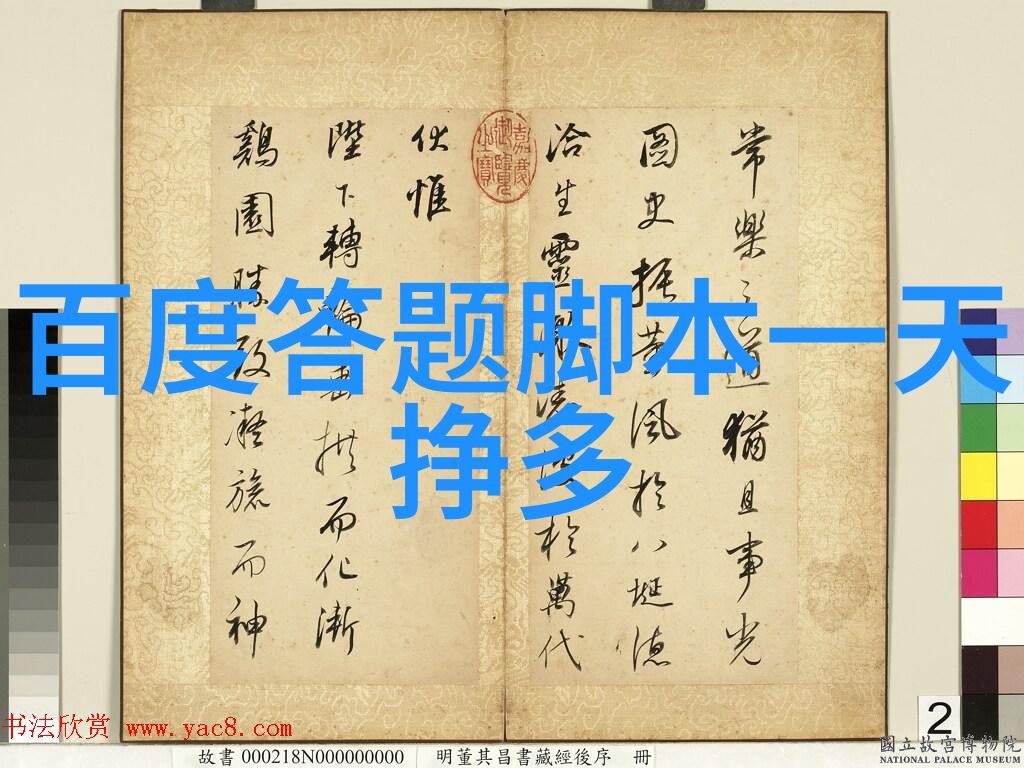 百度答题脚本一天
挣多
常樂之道猶且事光
圖史振風於八埏德
洽生靈於萬代
伏惟
陛下轉輪垂拱而化漸
鷄園勝殿凝旒而神
嘉慶御覽之寶
2
书法欣赏 www.yac8.com
故書 000218N000000000 明董其昌書藏經後序 冊
國立故宮博物院
NATIONAL PALACE MUSEUM